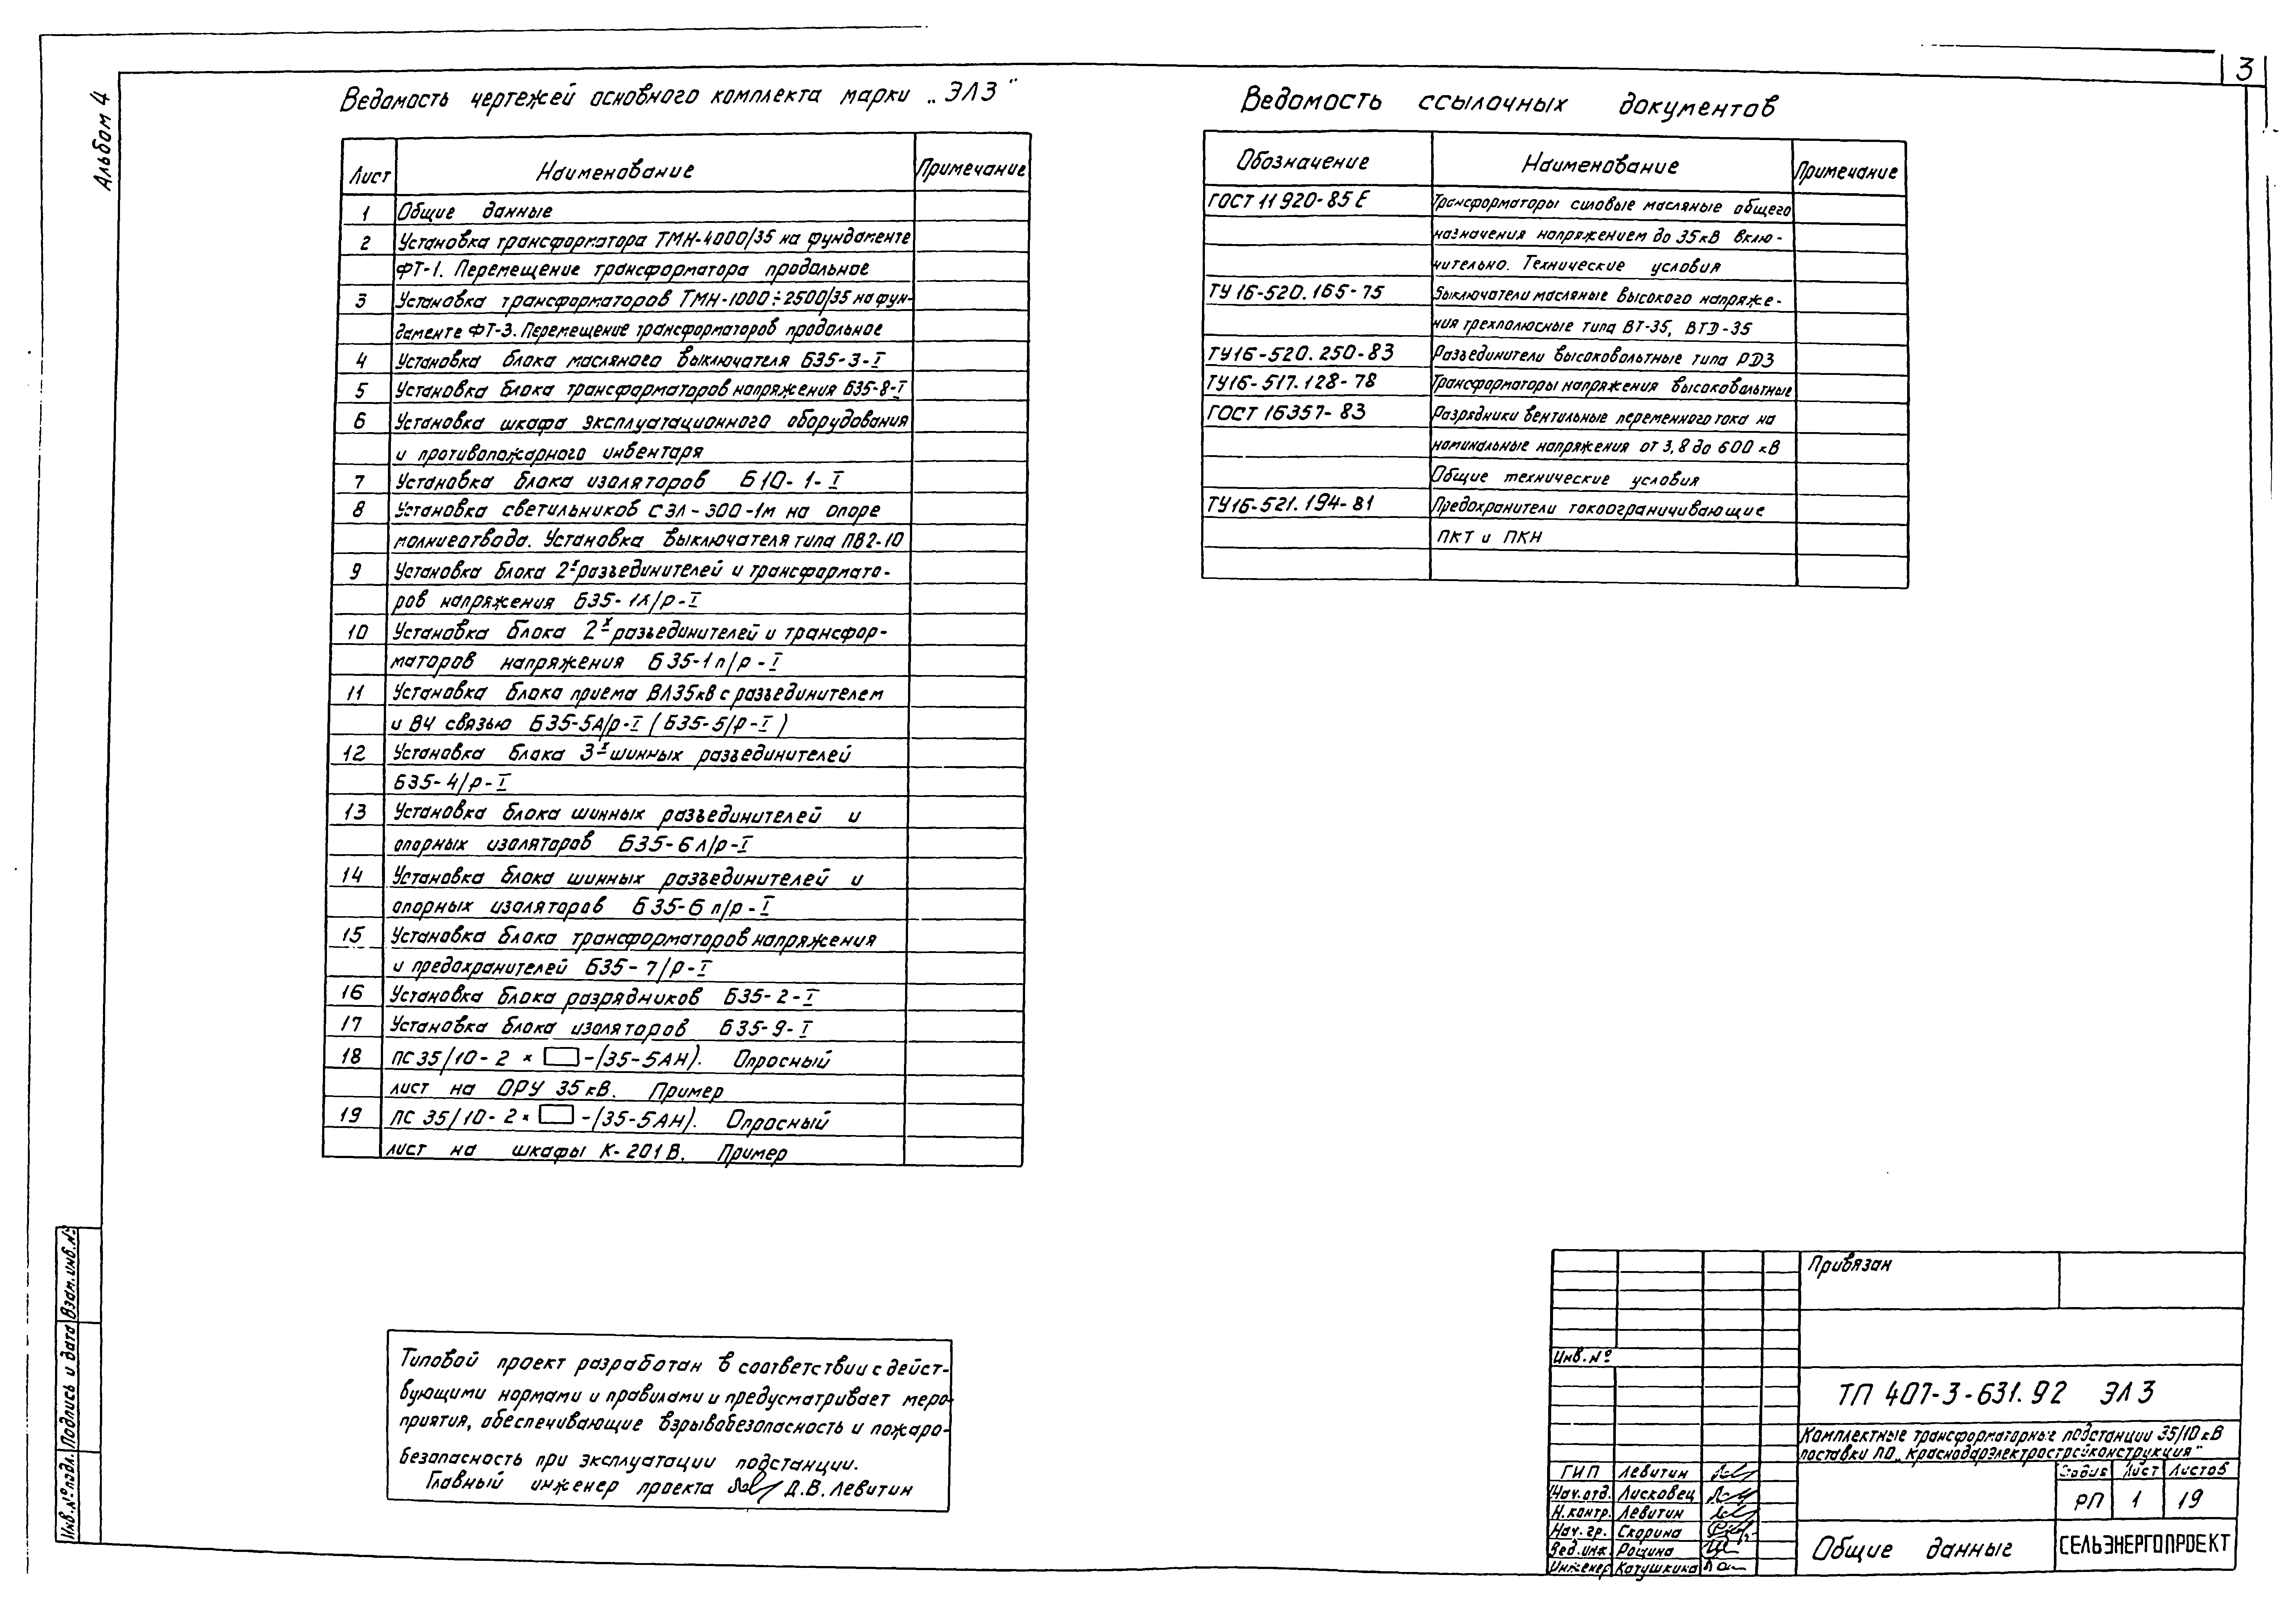 3
Альбом 4
Ведомость чертежей основного комплекта марки „ЭЛЗ"
Лист Наименование Примечание
1 Общие данные
2 Установка трансформатора ТМН-4000/35 на фундаменте
ФТ-1. Перемещение трансформатора продольное
3 Установка трансформаторов ТМН-1000÷2500/35 на фун-
даменте ФТ-3. Перемещение трансформаторов продольное
4 Установка блока масляного выключателя Б35-3-I
5 Установка блока трансформаторов напряжения Б35-8-I
6 Установка шкафа эксплуатационного оборудования
и противопожарного инвентаря
7 Установка блока изоляторов Б10-1-I
8 Установка светильников СЗЛ-300-1м на опоре
молниеотвода. Установка выключателя типа ПВ2-10
9 Установка блока 2х разъединителей и трансформато-
ров напряжения Б35-1л/р-I
10 Установка блока 2х разъединителей и трансфор-
маторов напряжения Б35-1п/р-I
11 Установка блока приема ВЛ35кВ с разъединителем
и ВЧ связью Б35-5А/р-I (Б35-5/р-I)
12 Установка блока 3х шинных разъединителей
Б35-4/р-I
13 Установка блока шинных разъединителей и
опорных изоляторов Б35-6л/р-I
14 Установка блока шинных разъединителей и
опорных изоляторов Б35-6п/р-I
15 Установка блока трансформаторов напряжения
и предохранителей Б35-7/р-I
16 Установка блока разрядников Б35-2-I
17 Установка блока изоляторов Б35-9-I
18 ПС 35/10-2 × -(35-5АН). Опросный
лист на ОРУ 35кВ. Пример
19 ПС 35/10-2 × -(35-5АН). Опросный
лист на шкафы К-201В. Пример
Ведомость ссылочных документов
Обозначение Наименование Примечание
ГОСТ 11920-85Е Трансформаторы силовые масляные общего
назначения напряжением до 35кВ вклю-
чительно. Технические условия
ТУ 16-520.165-75 Выключатели масляные высокого напряже-
ния трехполюсные типа ВТ-35, ВТД-35
ТУ16-520.250-83 Разъединители высоковольтные типа РДЗ
ТУ16-517.128-78 Трансформаторы напряжения высоковольтные
ГОСТ 16357-83 Разрядники вентильные переменного тока на
номинальные напряжения от 3,8 до 600 кВ
Общие технические условия
ТУ16-521.194-81 Предохранители токоограничивающие
ПКТ и ПКН
Типовой проект разработан в соответствии с дейст-
вующими нормами и правилами и предусматривает меро-
приятия, обеспечивающие взрывобезопасность и пожаро-
безопасность при эксплуатации подстанции.
Главный инженер проекта Д.В. Левитин
Инв.№подл. Подпись и дата Взам.инв.№
Привязан
Инв.№
ТП 407-3-631.92 ЭЛЗ
Комплектные трансформаторные подстанции 35/10 кВ
поставки ПО „Краснодарэлектростройконструкция"
ГИП Левитин
Нач.отд. Лисковец
Н.контр. Левитин
Нач.гр. Скорина
Вед.инж. Рощина
Инженер Катушкина
Стадия Лист Листов
РП 1 19
Общие данные
СЕЛЬЭНЕРГОПРОЕКТ